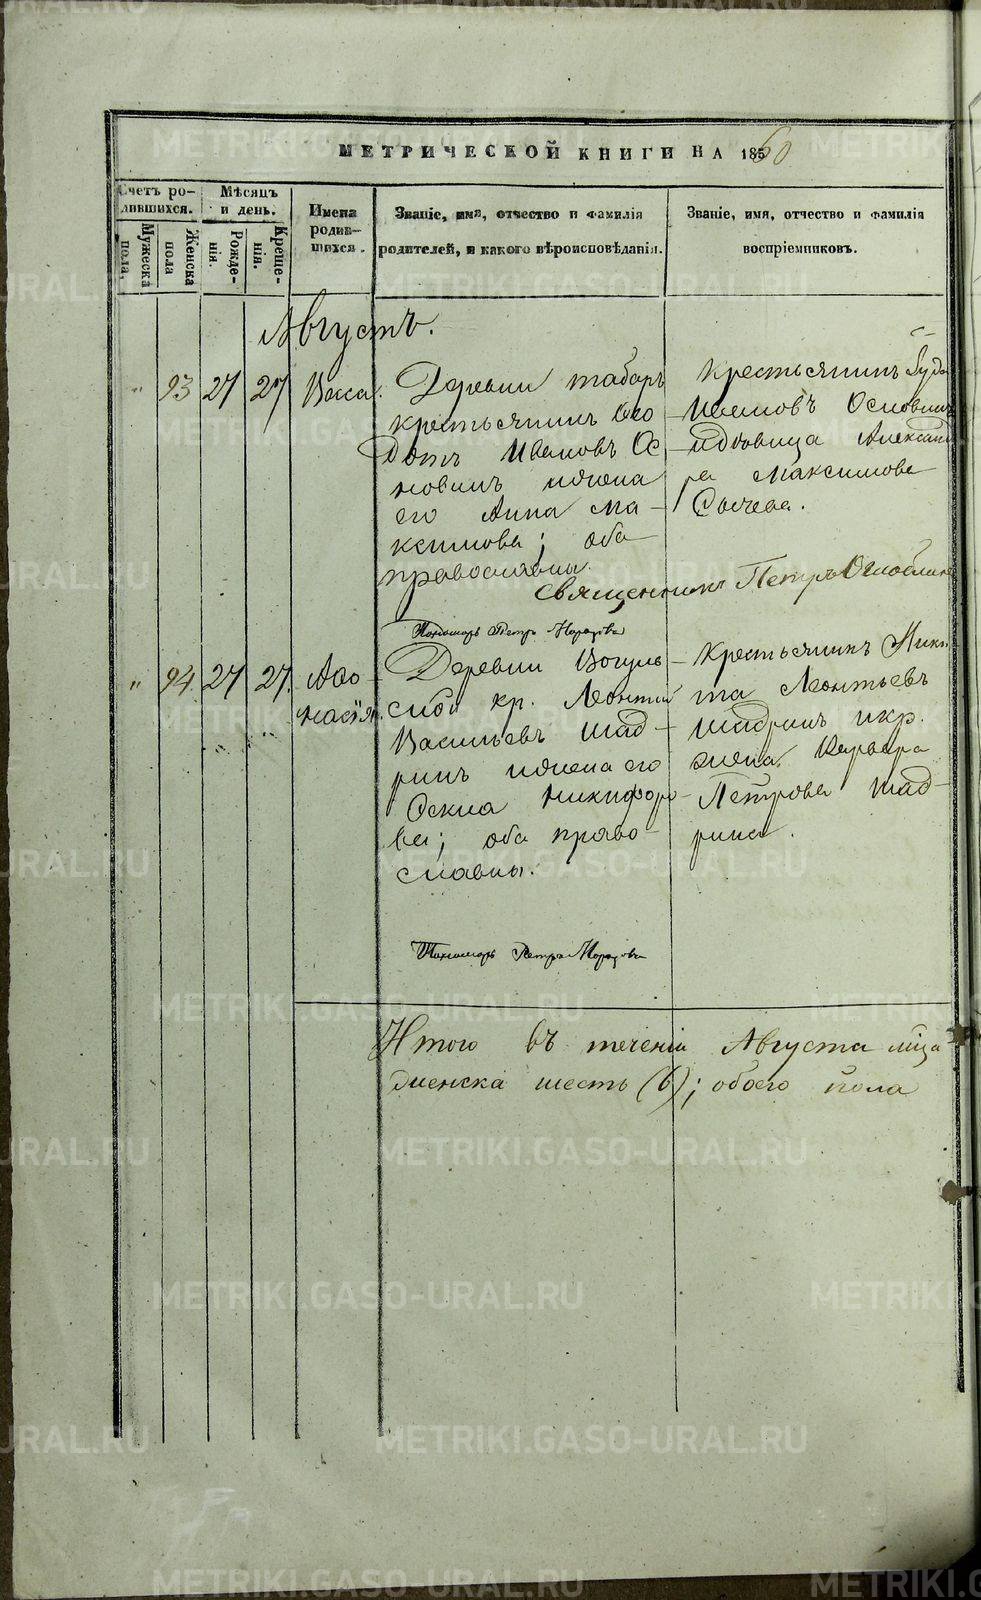 МЕТРИЧЕСКОЙ КНИГИ НА 1860
Счетъ ро-
дившихся.
Мужеска пола.
Женска пола
Мѣсяцъ
и день.
Рожде-
нія.
Креще-
нія.
Имена
родив-
шихся.
Званіе, имя, отчество и фамилія
родителей, и какого вѣроисповѣданія.
Званіе, имя, отчество и фамилія
воспріемниковъ.
Августъ.
" 93 27 27 Васса.
Деревни Табаръ
крестьянинъ Ѳео
дотъ Ивановъ Ос
новинъ и жена
его Анна Ма-
ксимова; оба
православны.
Крестьянинъ
Ивановъ Основинъ
и вдовица Александ
ра Максимова
Сычева.
Священникъ Петръ
Пономарь Петръ
" 94 27 27. Аѳо-
насія.
Деревни Вогуль-
ской кр. Леонтій
Васильевъ Шад-
ринъ и жена его
Никифоро-
ва; оба право-
славны.
Крестьянинъ Ники
та Леонтьевъ
Шадринъ и кр.
жена Варвара
Петрова Шад-
рина.
Пономарь Петръ
Итого въ теченіи Августа м҃ца
женска шесть (6); обоего пола
METRIKI.GASO-URAL.RU